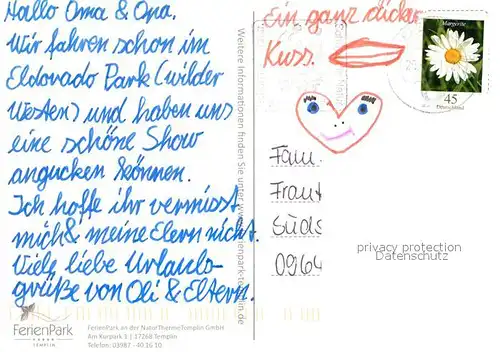 Hallo Oma & Opa.
Wir fahren schon im
Eldovado Park (wilder
Westen) und haben uns
eine schöne Show
angucken können.
Ich hoffe ihr vermisst
mich & meine Elern nicht.
Viele liebe Urlaubs-
grüße von Oli & Eltern.
FerienPark
TEMPLIN
FerienPark an der NaturThermeTemplin GmbH
Am Kurpark 1 | 17268 Templin
Telefon: 03987 - 40 16 10
Weitere Informationen finden Sie unter
Ein ganz dicker
Kuss.
Margerite
45
Deutschland
Fam.
Frant
Süds
0964
privacy protection
Datenschutz